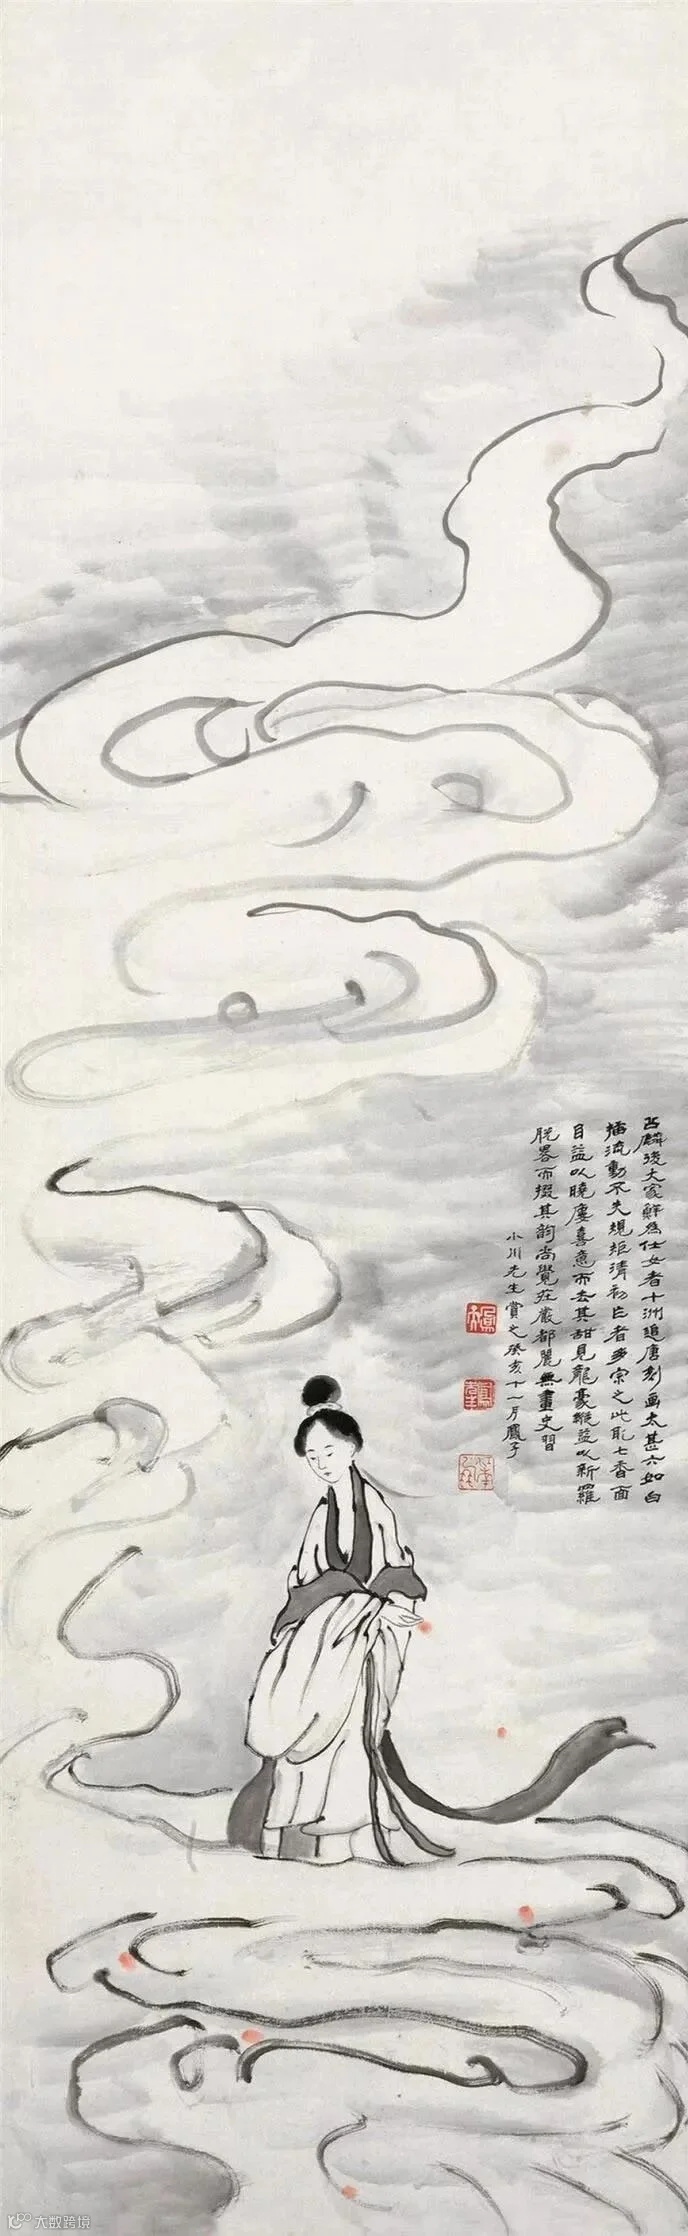 公麟後大家鮮為仕女者十洲追唐刻画太甚六如白
描流動不失規矩清初作者多宗之此取七香面
目益以曉廔意而去其甜見龍豪縱益以新羅
脱畧而掇其韵尚覺莊嚴都麗無畫史習
小川先生賞之癸亥十一月鳳子
大数跨境